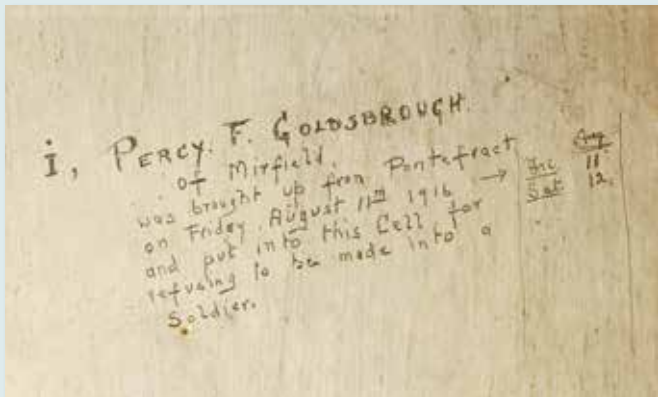 i, PERCY. F. GOLDSBROUGH.
of Mirfield.
was brought up from Pontefract
on Friday, August 11th 1916 →
and put into this Cell for
refusing to be made into a
Soldier.
Aug
Fri 11.
Sat 12.